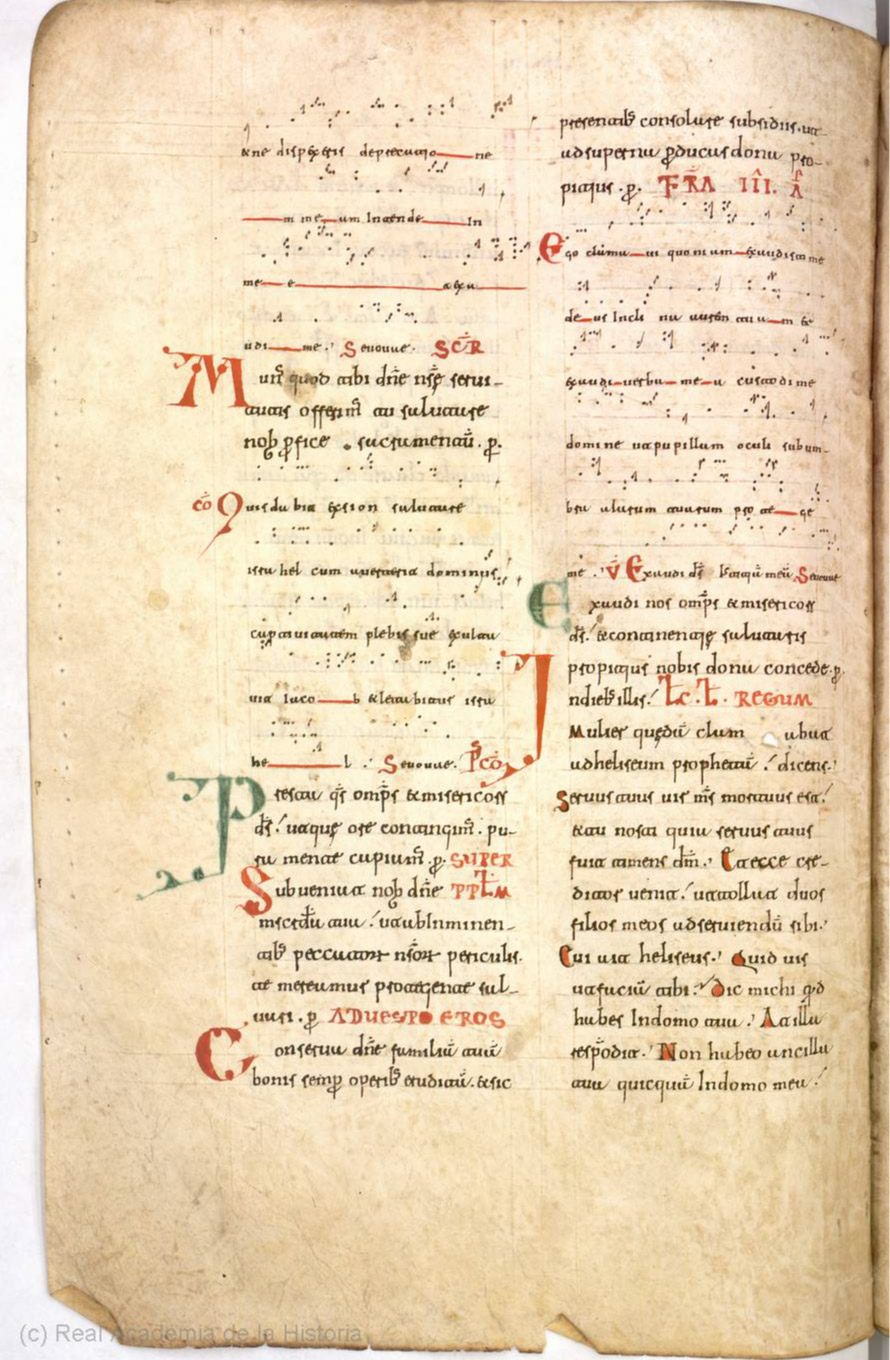 & ne dispexeris deprecatio ne
m me um Intende In
me e et exa
udi me. Seuouae. SCR
Mun9 quod tibi dñe nrẽ serui-
tutis offerim9 tu salutare
nob pfice sacramentũ. p.
cõ Quis dabit ex sion salutare
isra hel cum auerterit dominus
captiuitatem plebis sue exulta
uit iaco b & letabitur isra
he l. Seuouae. Pcõ
Presta qs omps & misericors
ds ut que ore contingim9. pu-
ra mente capiam9. p. SUPER
Subueniat nob dñe PPLM
mscdia tua ut ab Inminen-
tib peccator nror periculis.
te mereamur protegente sal-
uari. p AD UESPEROS
Conserua dñe familiã tuã
bonis semp operib eruditã. & sic
presentib consolare subsidiis. ut
ad superna pducas dona pro-
pitius. p. FRA III. A
Ego clama ui quoniam exaudisti me
de us Incli na aurem tua m &
exaudi uerba me a custodi me
domine ut pupillam oculi sub um-
bra alarum tuarum pro te ge
me. V Exaudi ds iustitiã meã Seuouae
Exaudi nos omps & misericors
ds. & continentie salutaris
propitius nobis dona concede. p.
In dieb illis. Lc. L. REGUM
Mulier quedã clam abat
ad heliseum prophetã. dicens.
Seruus tuus uir ms mortuus est.
& tu nosti quia seruus tuus
fuit timens dm. Et ecce cre-
ditor uenit. ut tollat duos
filios meos ad seruiendũ sibi.
Cui ait heliseus. Quid uis
ut faciã tibi. Dic michi qd
habes In domo tua. At illa
respõdit. Non habeo ancilla
tua quicquã In domo mea.
(c) Real Academia de la Historia